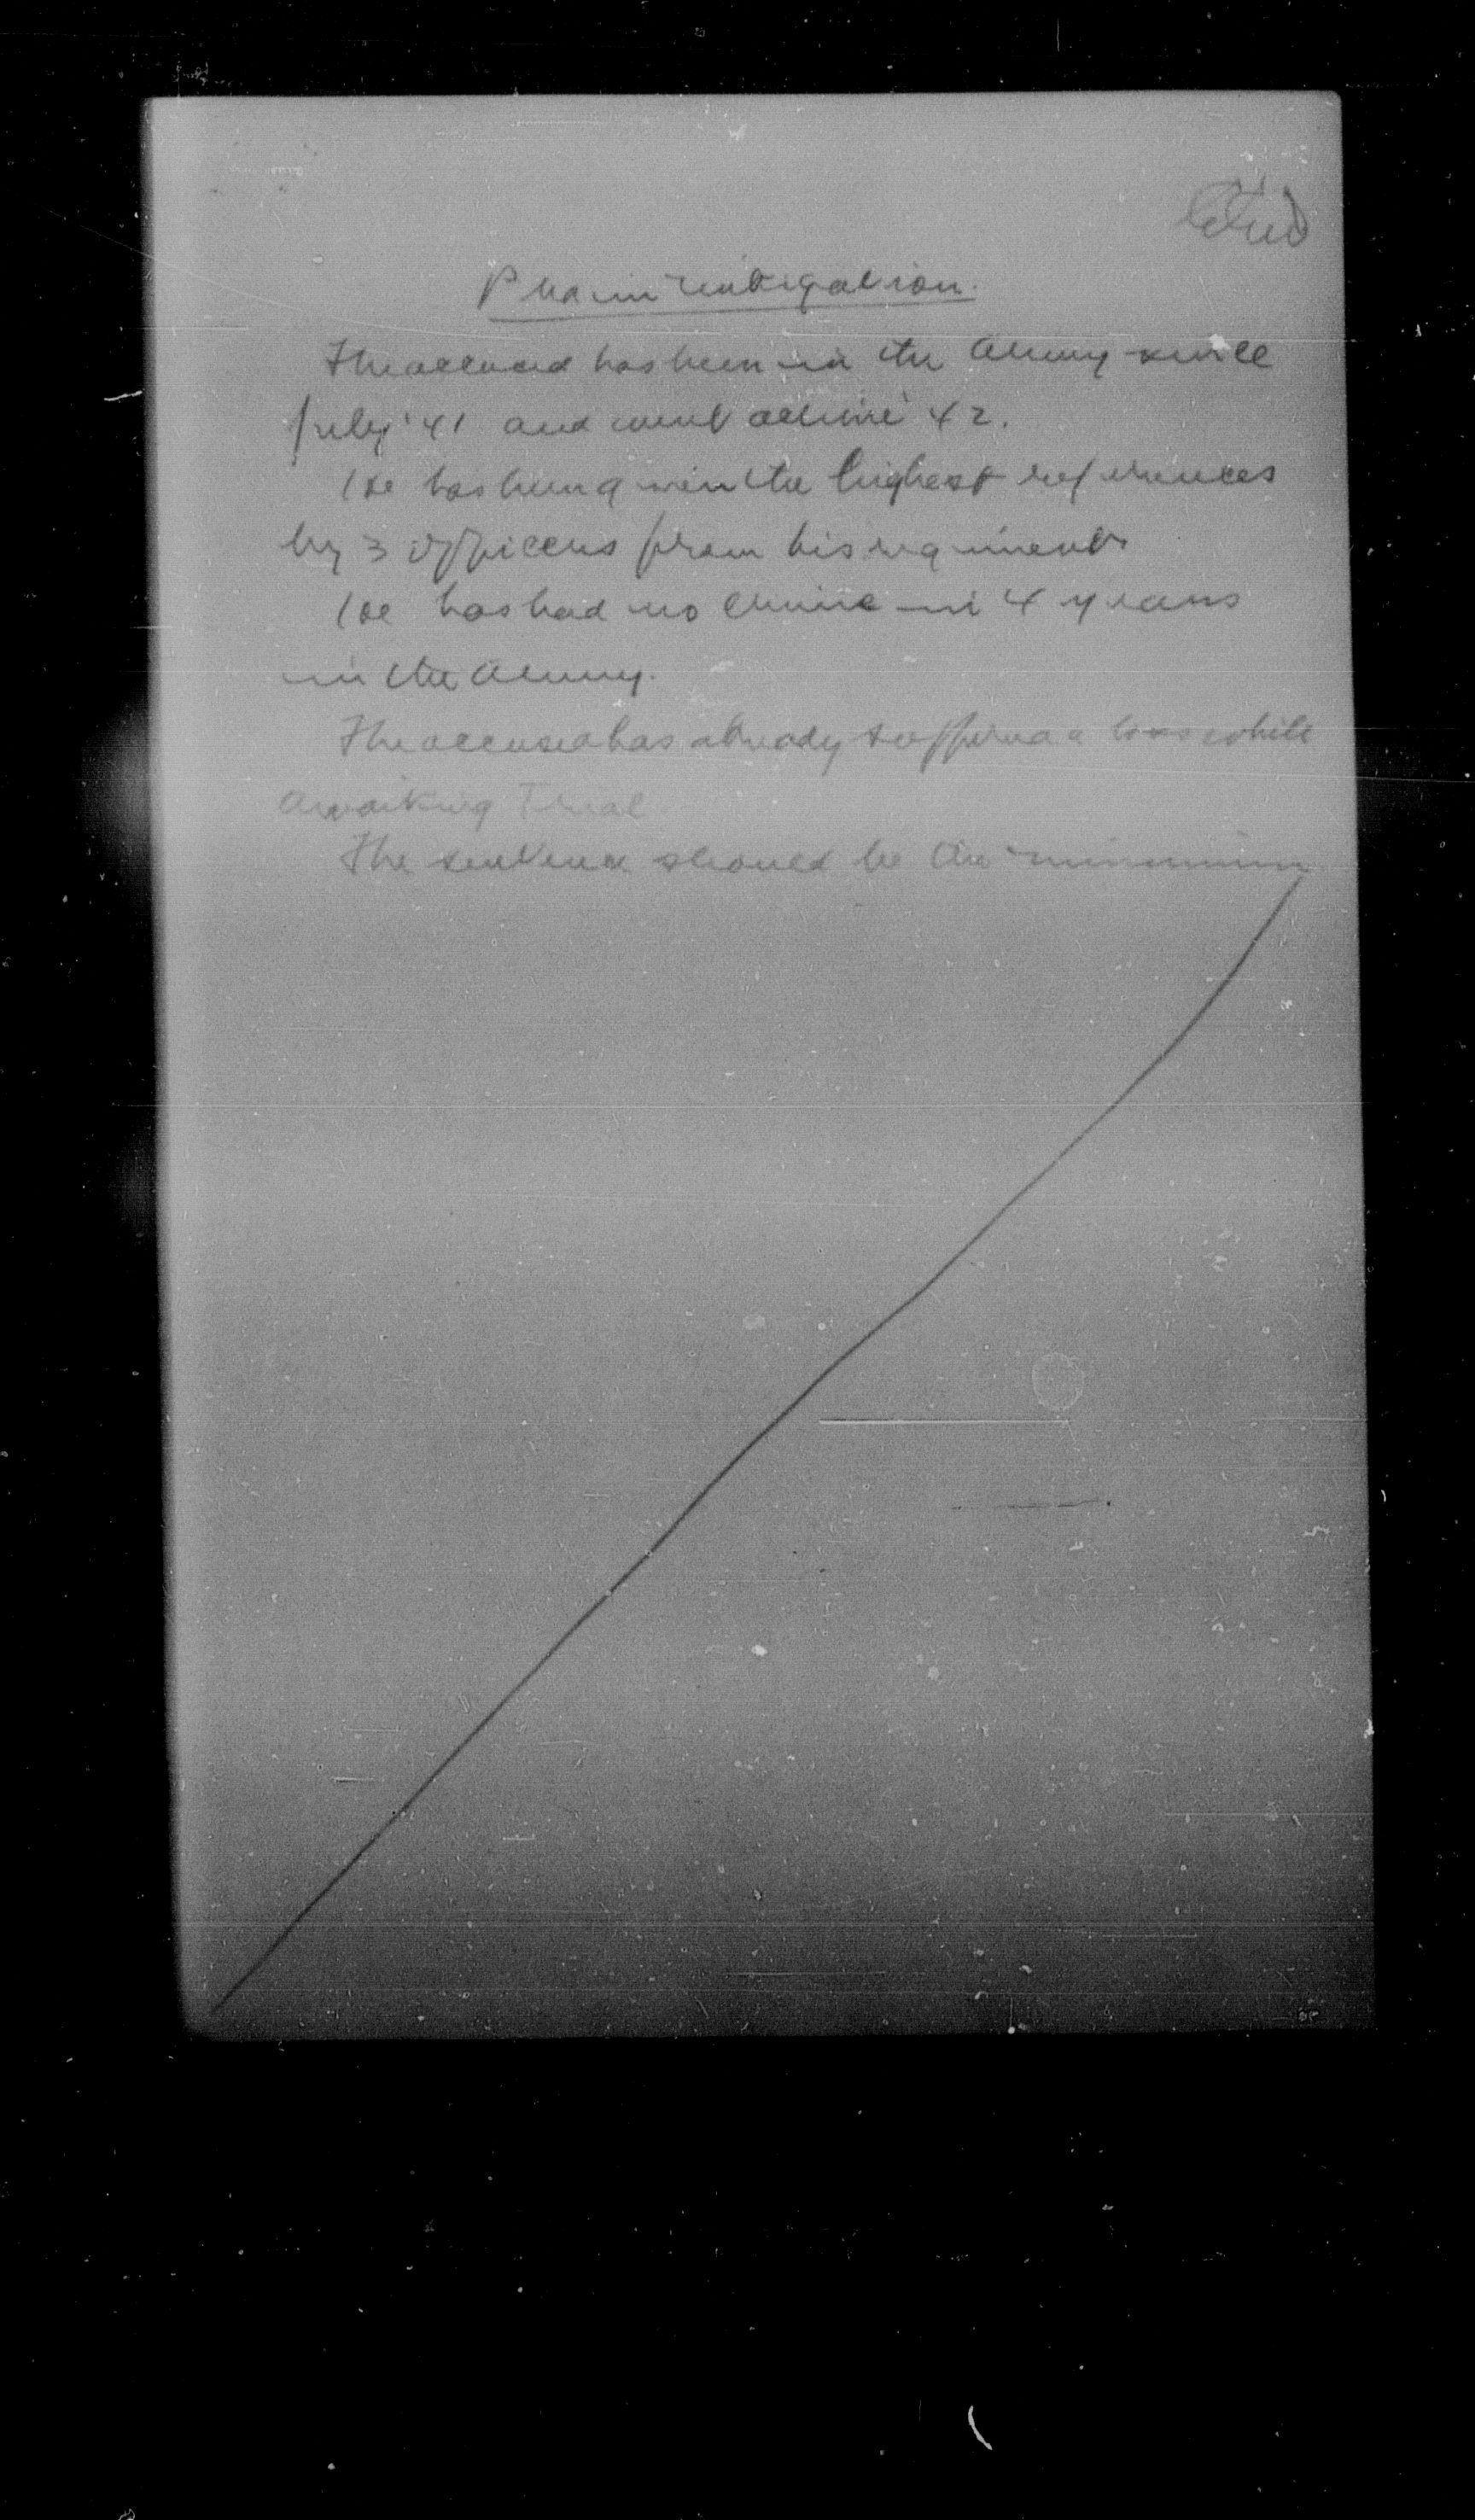 Plea in mitigation.
The accused has been in the Army since
July '41 and went active '42.
He has been given the highest references
by 3 officers from his regiment
He has had no crime in 4 years
in the Army.
The accused has already suffered a loss while
awaiting Trial
The sentence should be the minimum